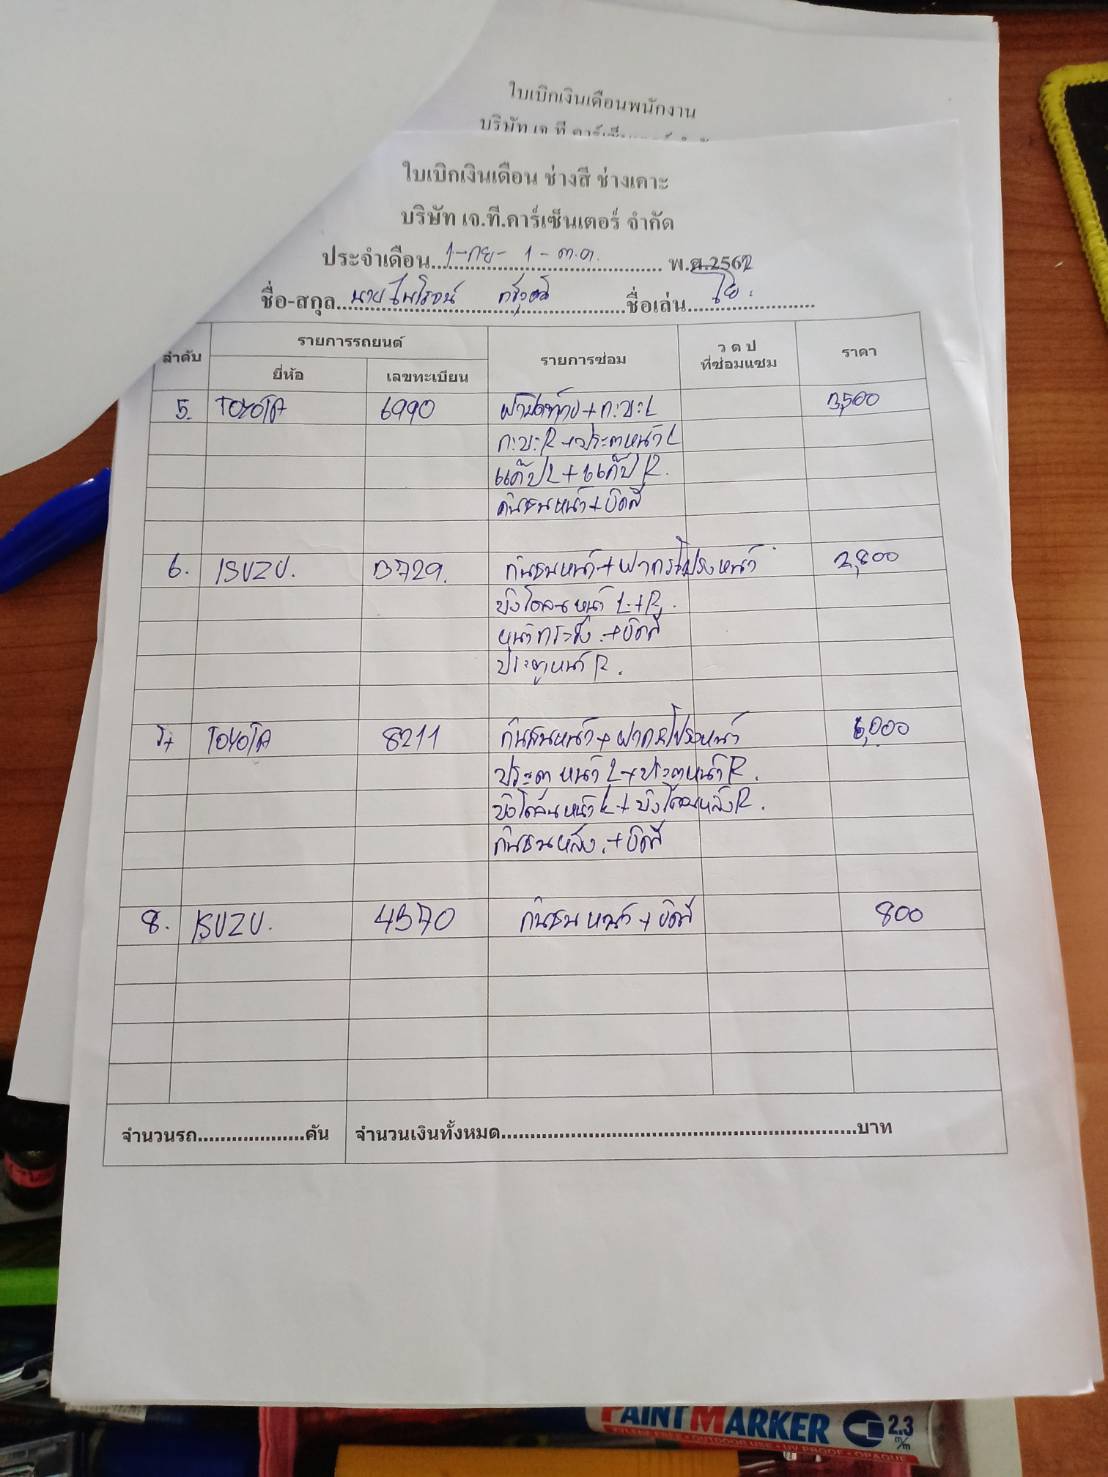 ใบเบิกเงินเดือนพนักงาน
บริษัท เจ ที คาร์เซ็นเตอร์
ใบเบิกเงินเดือน ช่างสี ช่างเคาะ
บริษัท เจ.ที.คาร์เซ็นเตอร์ จำกัด
ประจำเดือน 1-กย- 1-ต.ค. พ.ศ.2562
ชื่อ-สกุล นายไพโรจน์ ชื่อเล่น
ลำดับ รายการรถยนต์ รายการซ่อม ว ด ป ที่ซ่อมแซม ราคา
ยี่ห้อ เลขทะเบียน
5. TOYOTA 6990 ฝาปิดท้าย+กะบะL 3,500
กะบะR+ประตูหน้าL
แค๊ปL+แค๊ปR.
กันชนหน้า+ขัดสี
6. ISUZU. 3729. กันชนหน้า+ฝากระโปรงหน้า 2,800
บังโคลนหน้า L+R.
หน้ากระจัง.+ขัดสี
ประตูหน้า R.
7. TOYOTA 8211 กันชนหน้า+ฝากระโปรงหน้า 6,000
ประตูหน้า L+ประตูหน้า R.
บังโคลนหน้า L+บังโคลนหลัง R.
กันชนหลัง.+ขัดสี
8. ISUZU. 4370 กันชนหน้า+ขัดสี 800
จำนวนรถ....................คัน จำนวนเงินทั้งหมด............................................................บาท
PAINT MARKER 2.3 m/m